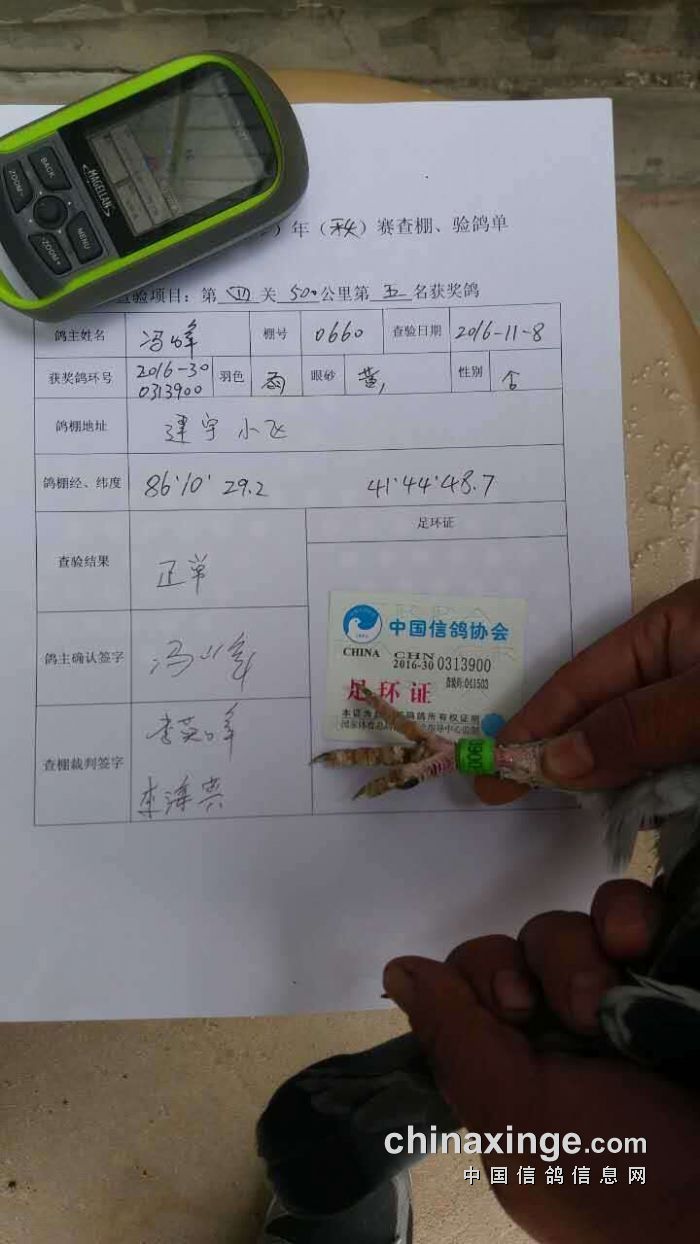 MAGELLAN
BACK
MENU
ZOOM-
ZOOM+
年（秋）赛查棚、验鸽单
查验项目：第四关500公里第五名获奖鸽
鸽主姓名 冯峰 棚号 0660 查验日期 2016-11-8
获奖鸽环号 2016-30 0313900 羽色 雨 眼砂 黄 性别
鸽棚地址 建宇小飞
鸽棚经、纬度 86°10′29.2 41°44′48.7
足环证
查验结果 正常
鸽主确认签字 冯峰
查棚裁判签字
中国信鸽协会
CHINA CHN
2016-30 0313900
足环证
chinaxinge.com
中国信鸽信息网